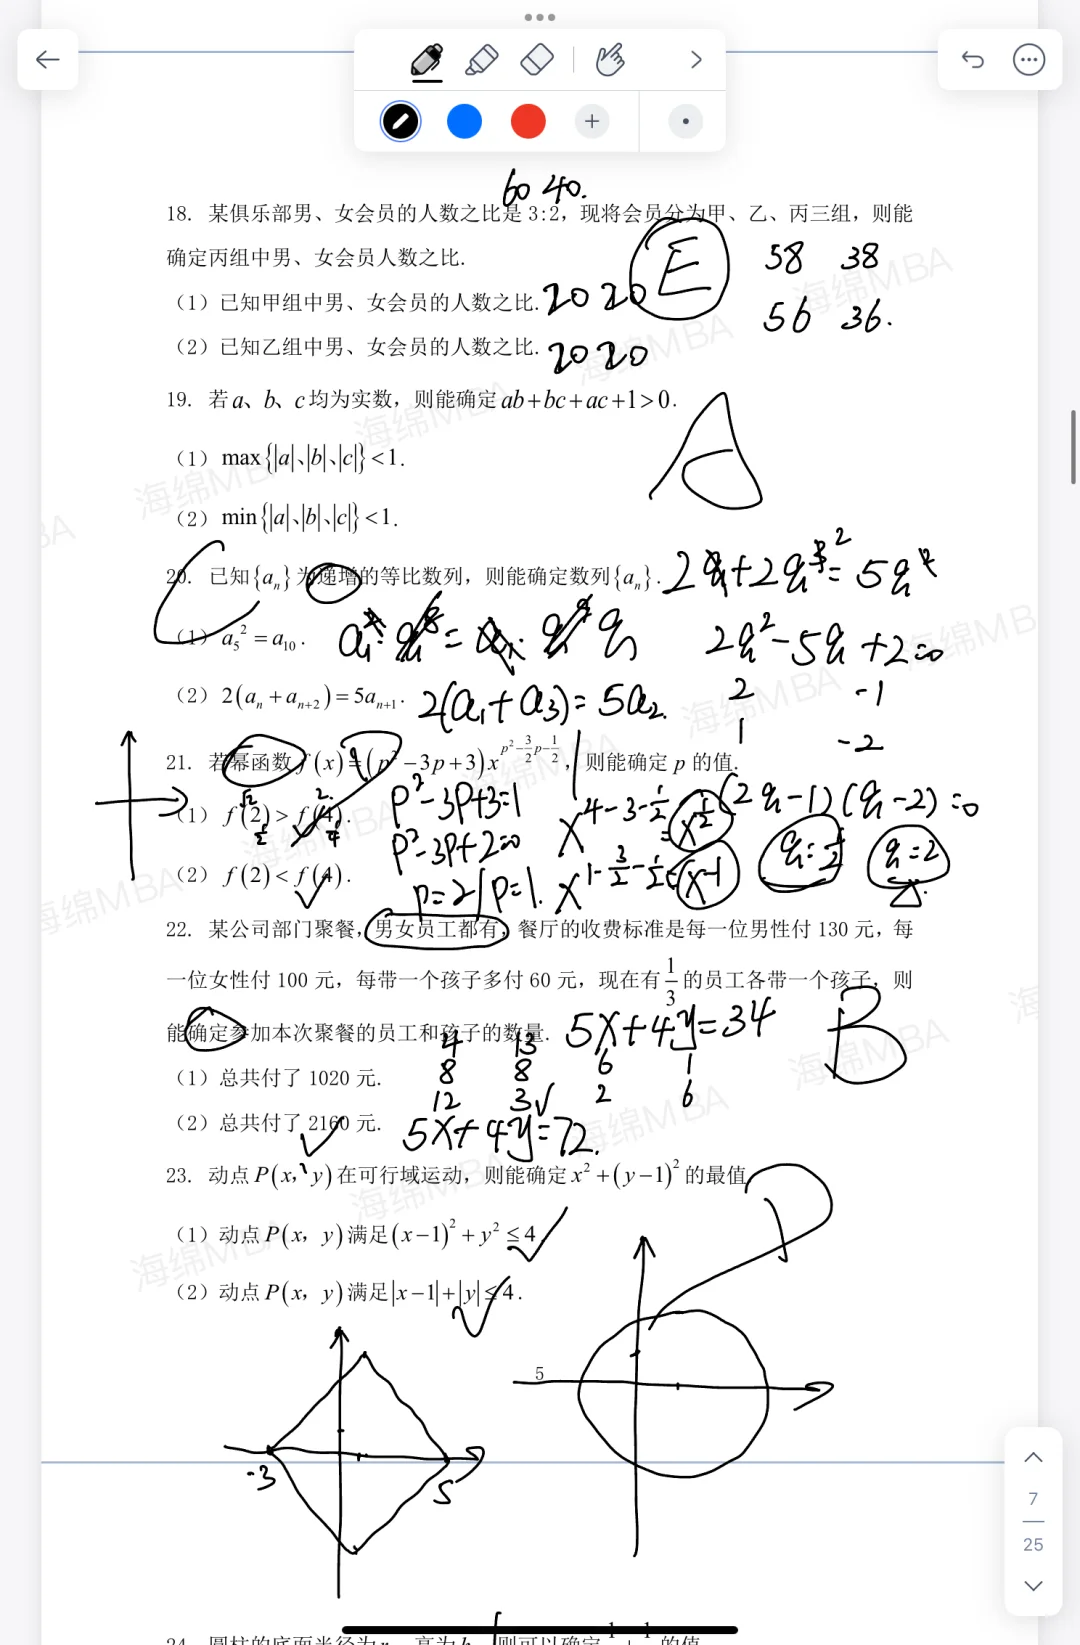 60 40.
18. 某俱乐部男、女会员的人数之比是 3:2, 现将会员分为甲、乙、丙三组, 则能
确定丙组中男、女会员人数之比.
E
58 38
(1) 已知甲组中男、女会员的人数之比. 20 20
56 36.
(2) 已知乙组中男、女会员的人数之比. 20 20
19. 若a、b、c均为实数, 则能确定ab+bc+ac+1>0.
A
(1) max{|a|、|b|、|c|}<1.
(2) min{|a|、|b|、|c|}<1.
C
20. 已知{aₙ}为递增的等比数列, 则能确定数列{aₙ}.
(1) a₅²=a₁₀.
2q²-5q+2=0
(2) 2(aₙ+aₙ₊₂)=5aₙ₊₁. 2(a₁+a₃)=5a₂.
2 -1
1 -2
21. 若幂函数f(x)=(p²-3p+3)x^(p²-3/2p-1/2), 则能确定 p 的值.
(1) f(2)>f(4). p²-3p+3=1
x^(4-3-1/2)=x^(1/2)
(2q-1)(q-2)=0
p²-3p+2=0
(2) f(2)<f(4).
p=2 p=1. x^(1-3/2-1/2)=x^-1
q=1/2 q=2
22. 某公司部门聚餐, 男女员工都有, 餐厅的收费标准是每一位男性付 130 元, 每
一位女性付 100 元, 每带一个孩子多付 60 元, 现在有1/3的员工各带一个孩子, 则
能确定参加本次聚餐的员工和孩子的数量.
5x+4y=34
B
4 13
(1) 总共付了 1020 元.
8 8
6 1
12 3
2 6
(2) 总共付了 2160 元. 5x+4y=72.
23. 动点P(x, y)在可行域运动, 则能确定x²+(y-1)²的最值
D
(1) 动点P(x, y)满足(x-1)²+y²≤4
(2) 动点P(x, y)满足|x-1|+|y|≤4.
5
-3
5
7
25